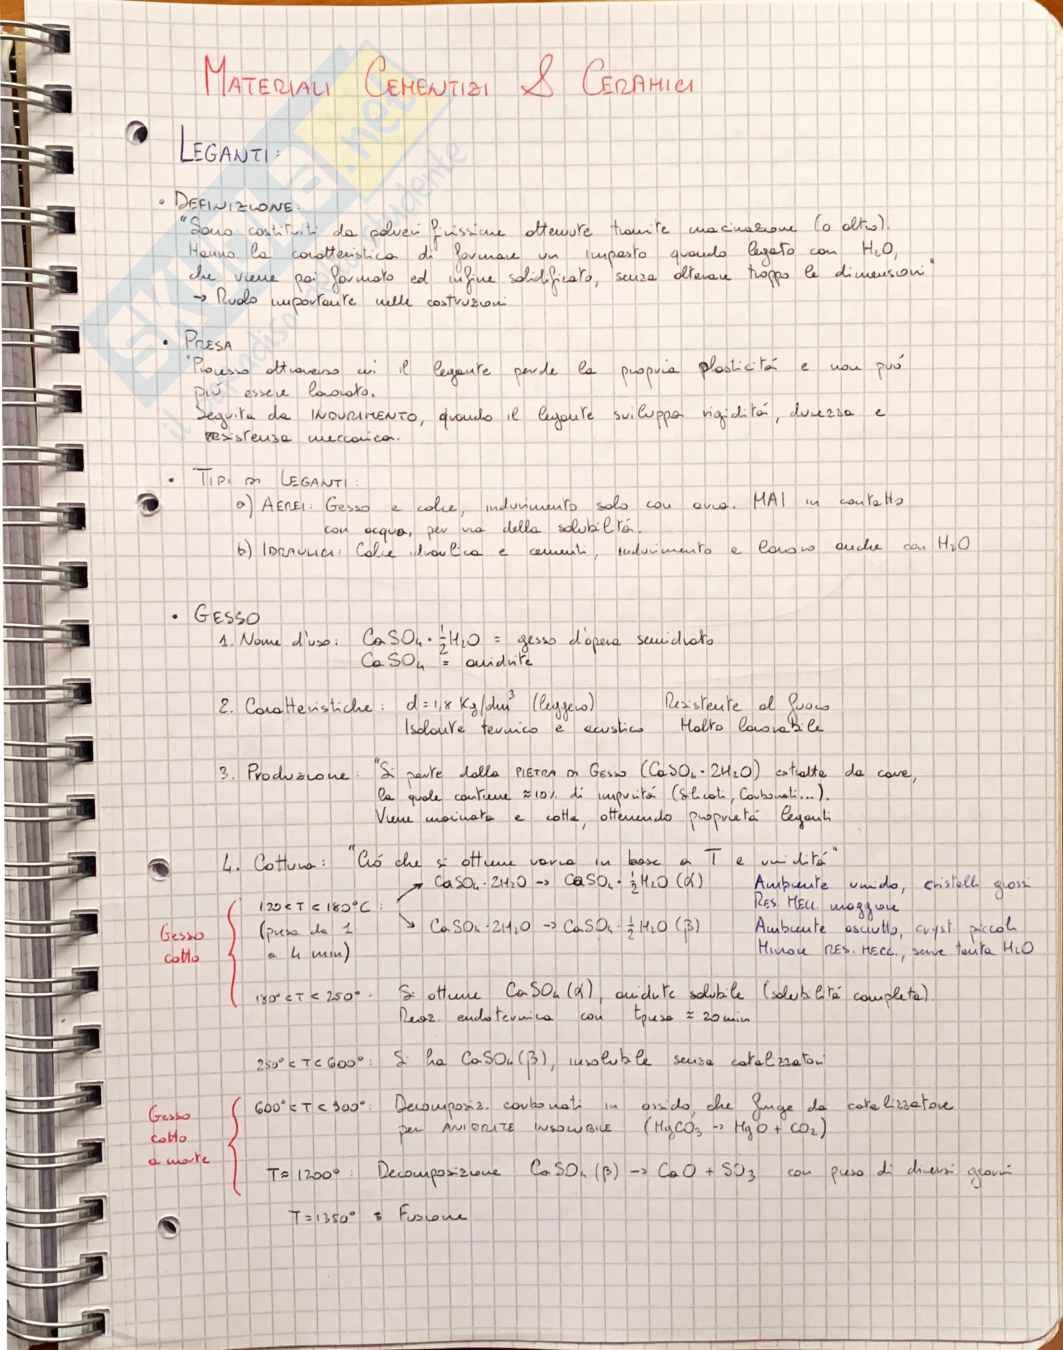 MATERIALI CEMENTIZI & CERAMICI
LEGANTI:
• DEFINIZIONE:
"Sono costituiti da polveri finissime ottenute tramite macinazione (o altro).
Hanno la caratteristica di formare un impasto quando legato con H2O,
che viene poi formato ed infine solidificato, senza alterare troppo le dimensioni"
→ Ruolo importante nelle costruzioni
• PRESA
"Processo attraverso cui il legante perde la propria plasticitá e non puó
piú essere lavorato.
Seguita da INDURIMENTO, quando il legante sviluppa rigiditá, durezza e
resistenza meccanica.
• TIPI DI LEGANTI:
a) AEREI: Gesso e calce, indurimento solo con aria. MAI in contatto
con acqua, per via della solubilitá.
b) IDRAULICI: Calce idraulica e cementi, indurimento e lavoro anche con H2O
• GESSO
1. Nome d'uso: CaSO4 · 1/2 H2O = gesso d'opera semidrato
CaSO4 = anidrite
2. Caratteristiche: d = 1,8 Kg/dm³ (leggero) Resistente al fuoco
Isolante termico e acustico Molto lavorabile
3. Produzione: "Si parte dalla PIETRA DI GESSO (CaSO4 · 2H2O) estratta da cave,
la quale contiene ≈10% di impuritá (Silicati, Carbonati...).
Viene macinata e cotta, ottenendo proprietá leganti
4. Cottura: "Ció che si ottiene varia in base a T e umiditá"
CaSO4 · 2H2O → CaSO4 · 1/2 H2O (α) Ambiente umido, cristalli grossi
120 < T < 180°C: RES. MECC. maggiore
Gesso cotto (presa da 1 a 4 min) CaSO4 · 2H2O → CaSO4 · 1/2 H2O (β) Ambiente asciutto, cryst piccoli
Minore RES. MECC., serve tanta H2O
180° < T < 250°: Si ottiene CaSO4 (α), anidrite solubile (solubilitá completa)
Reaz. endotermica con tpresa ≈ 20min
250° < T < 600°: Si ha CaSO4 (β), insolubile senza catalizzatori
Gesso cotto a morte 600° < T < 900°: Decomposiz. carbonati in ossido, che funge da catalizzatore
per ANIDRITE INSOLUBILE (MgCO3 → MgO + CO2)
T = 1200°: Decomposizione CaSO4 (β) → CaO + SO3 con presa di diversi giorni
T = 1350° : Fusione
SKUOLA.net